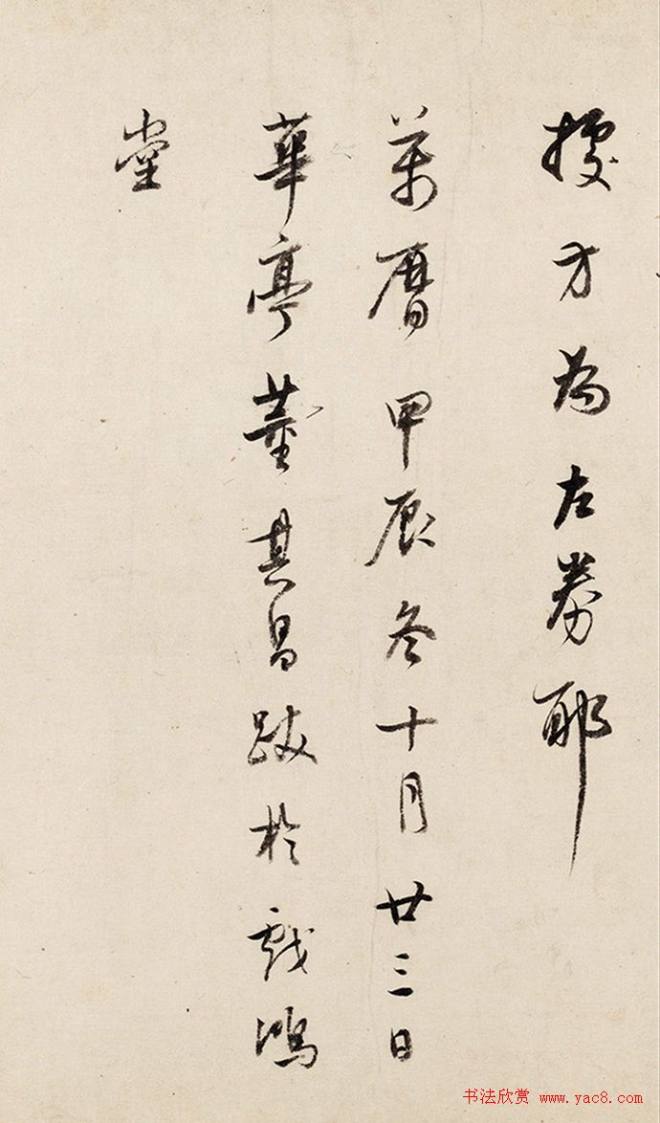 據方為左券耶
萬曆甲辰冬十月廿三日
華亭董其昌跋於戲鴻
堂
书法欣赏 www.yac8.com